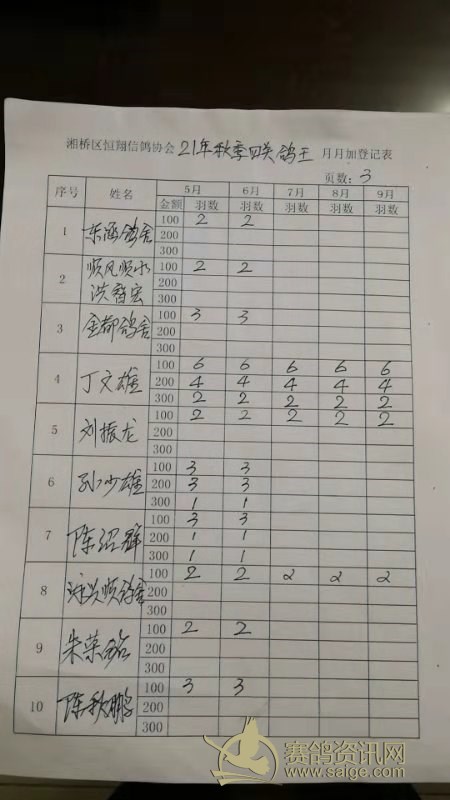 湘桥区恒翔信鸽协会 21年秋季四关鸽王 月月加登记表
页数：3
序号 姓名 5月 6月 7月 8月 9月
金额 羽数 羽数 羽数 羽数 羽数
1 东涵鸽舍 100 2 2
200
300
2 顺风顺水 100 2 2
洪 宏 200
300
3 金都鸽舍 100 3 3
200
300
4 丁文雄 100 6 6 6 6 6
200 4 4 4 4 4
300 2 2 2 2 2
5 刘振龙 100 2 2 2 2 2
200
300
6 孙少雄 100 3 3
200 3 3
300 1 1
7 陈绍群 100 3 3
200 1 1
300 1 1
8 兴顺鸽舍 100 2 2 2 2 2
200
300
9 朱荣 100 2 2
200
300
10 陈秋鹏 100 3 3
200
300
赛鸽资讯网
www.saige.com